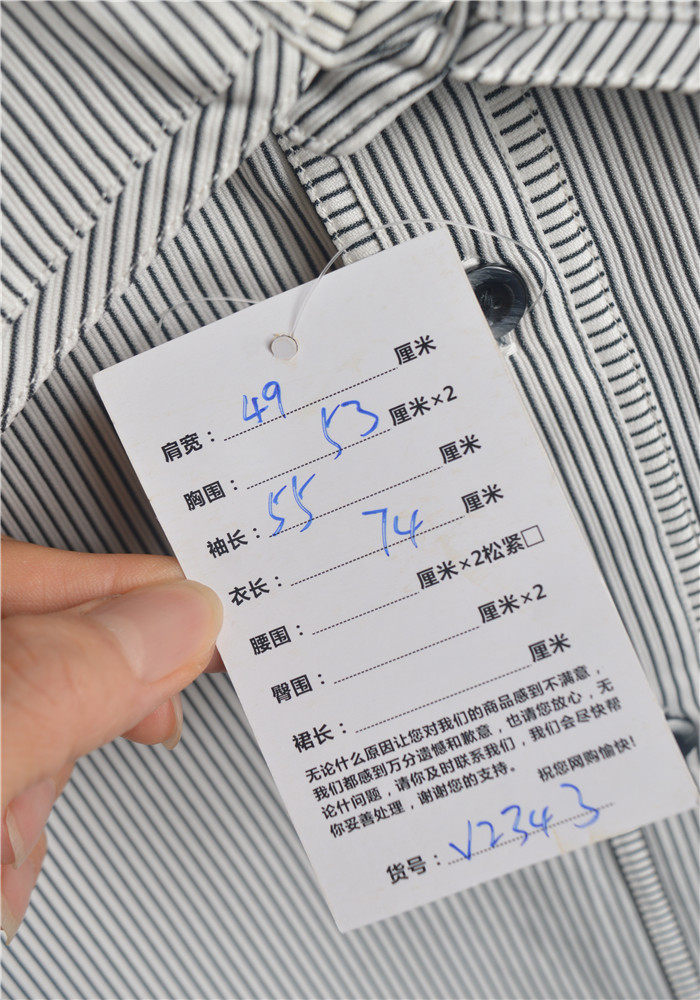 肩宽：49厘米
胸围：53厘米×2
袖长：55厘米
衣长：74厘米
腰围：厘米×2松紧□
臀围：厘米×2
裙长：厘米
无论什么原因让您对我们的商品感到不满意，
我们都感到万分遗憾和歉意，也请您放心，无
论什问题，请你及时联系我们，我们会尽快帮
你妥善处理，谢谢您的支持。 祝您网购愉快！
货号：V2343